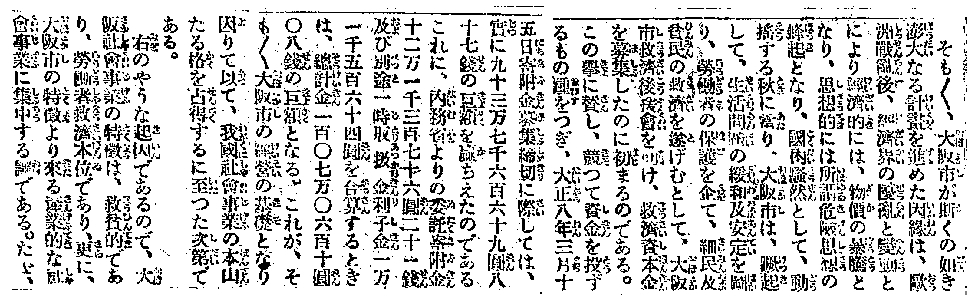 そもゝゝ、大阪市が斯くの如き
彭大なる計畫を進めた因緣は、歐
洲戰亂後、經濟界の擾亂と變動と
により經濟的には、物價の暴騰と
なり、思想的には所謂危險思想の
蜂起となり、國内騷然として、動
搖する秋に當り、大阪市は、蹶起
して、生活問題の緩和及安定を圖
り、勞働者の保護を企て、細民及
貧民の救濟を遂げむとして、大阪
市救濟後援會を設け、救濟資本金
を募集したのに初まるのである。
この擧に賛し、競つて資金を投す
るもの踵をつぎ、大正八年三月十
五日寄附金募集締切に際しては、
實に九十三万七千六百六十九圓八
十七錢の巨額を算ちえたのである
これに、内務省よりの委託寄附金
十二万一千三百七十六圓二十一錢
及び別途一時取扱金利子金一万
一千五百六十四圓を合算するとき
は、總計金一百〇七万〇六百十圓
〇八錢の巨額となる。これが、そ
もゝゝ大阪市の經營の基礎となり
因りて以て、我國社會事業の本山
たる格を占得するに至つた次第で
ある。
右のやうな起因であるので、大
阪社會事業の特徴は、救貧的であ
り、勞働者救濟本位であり、更に、
大阪市の特徴より來る極業的な社
會事業に集中する譯である。たゞ、